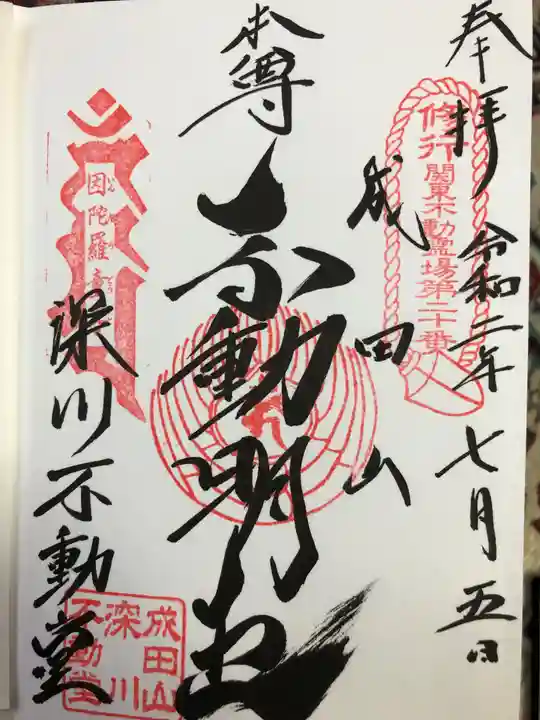 奉拝 令和二年七月五日
修行 関東不動霊場第二十番
成田山
本尊 不動明王
因陀羅
深川不動堂
成田山
深川
不動堂